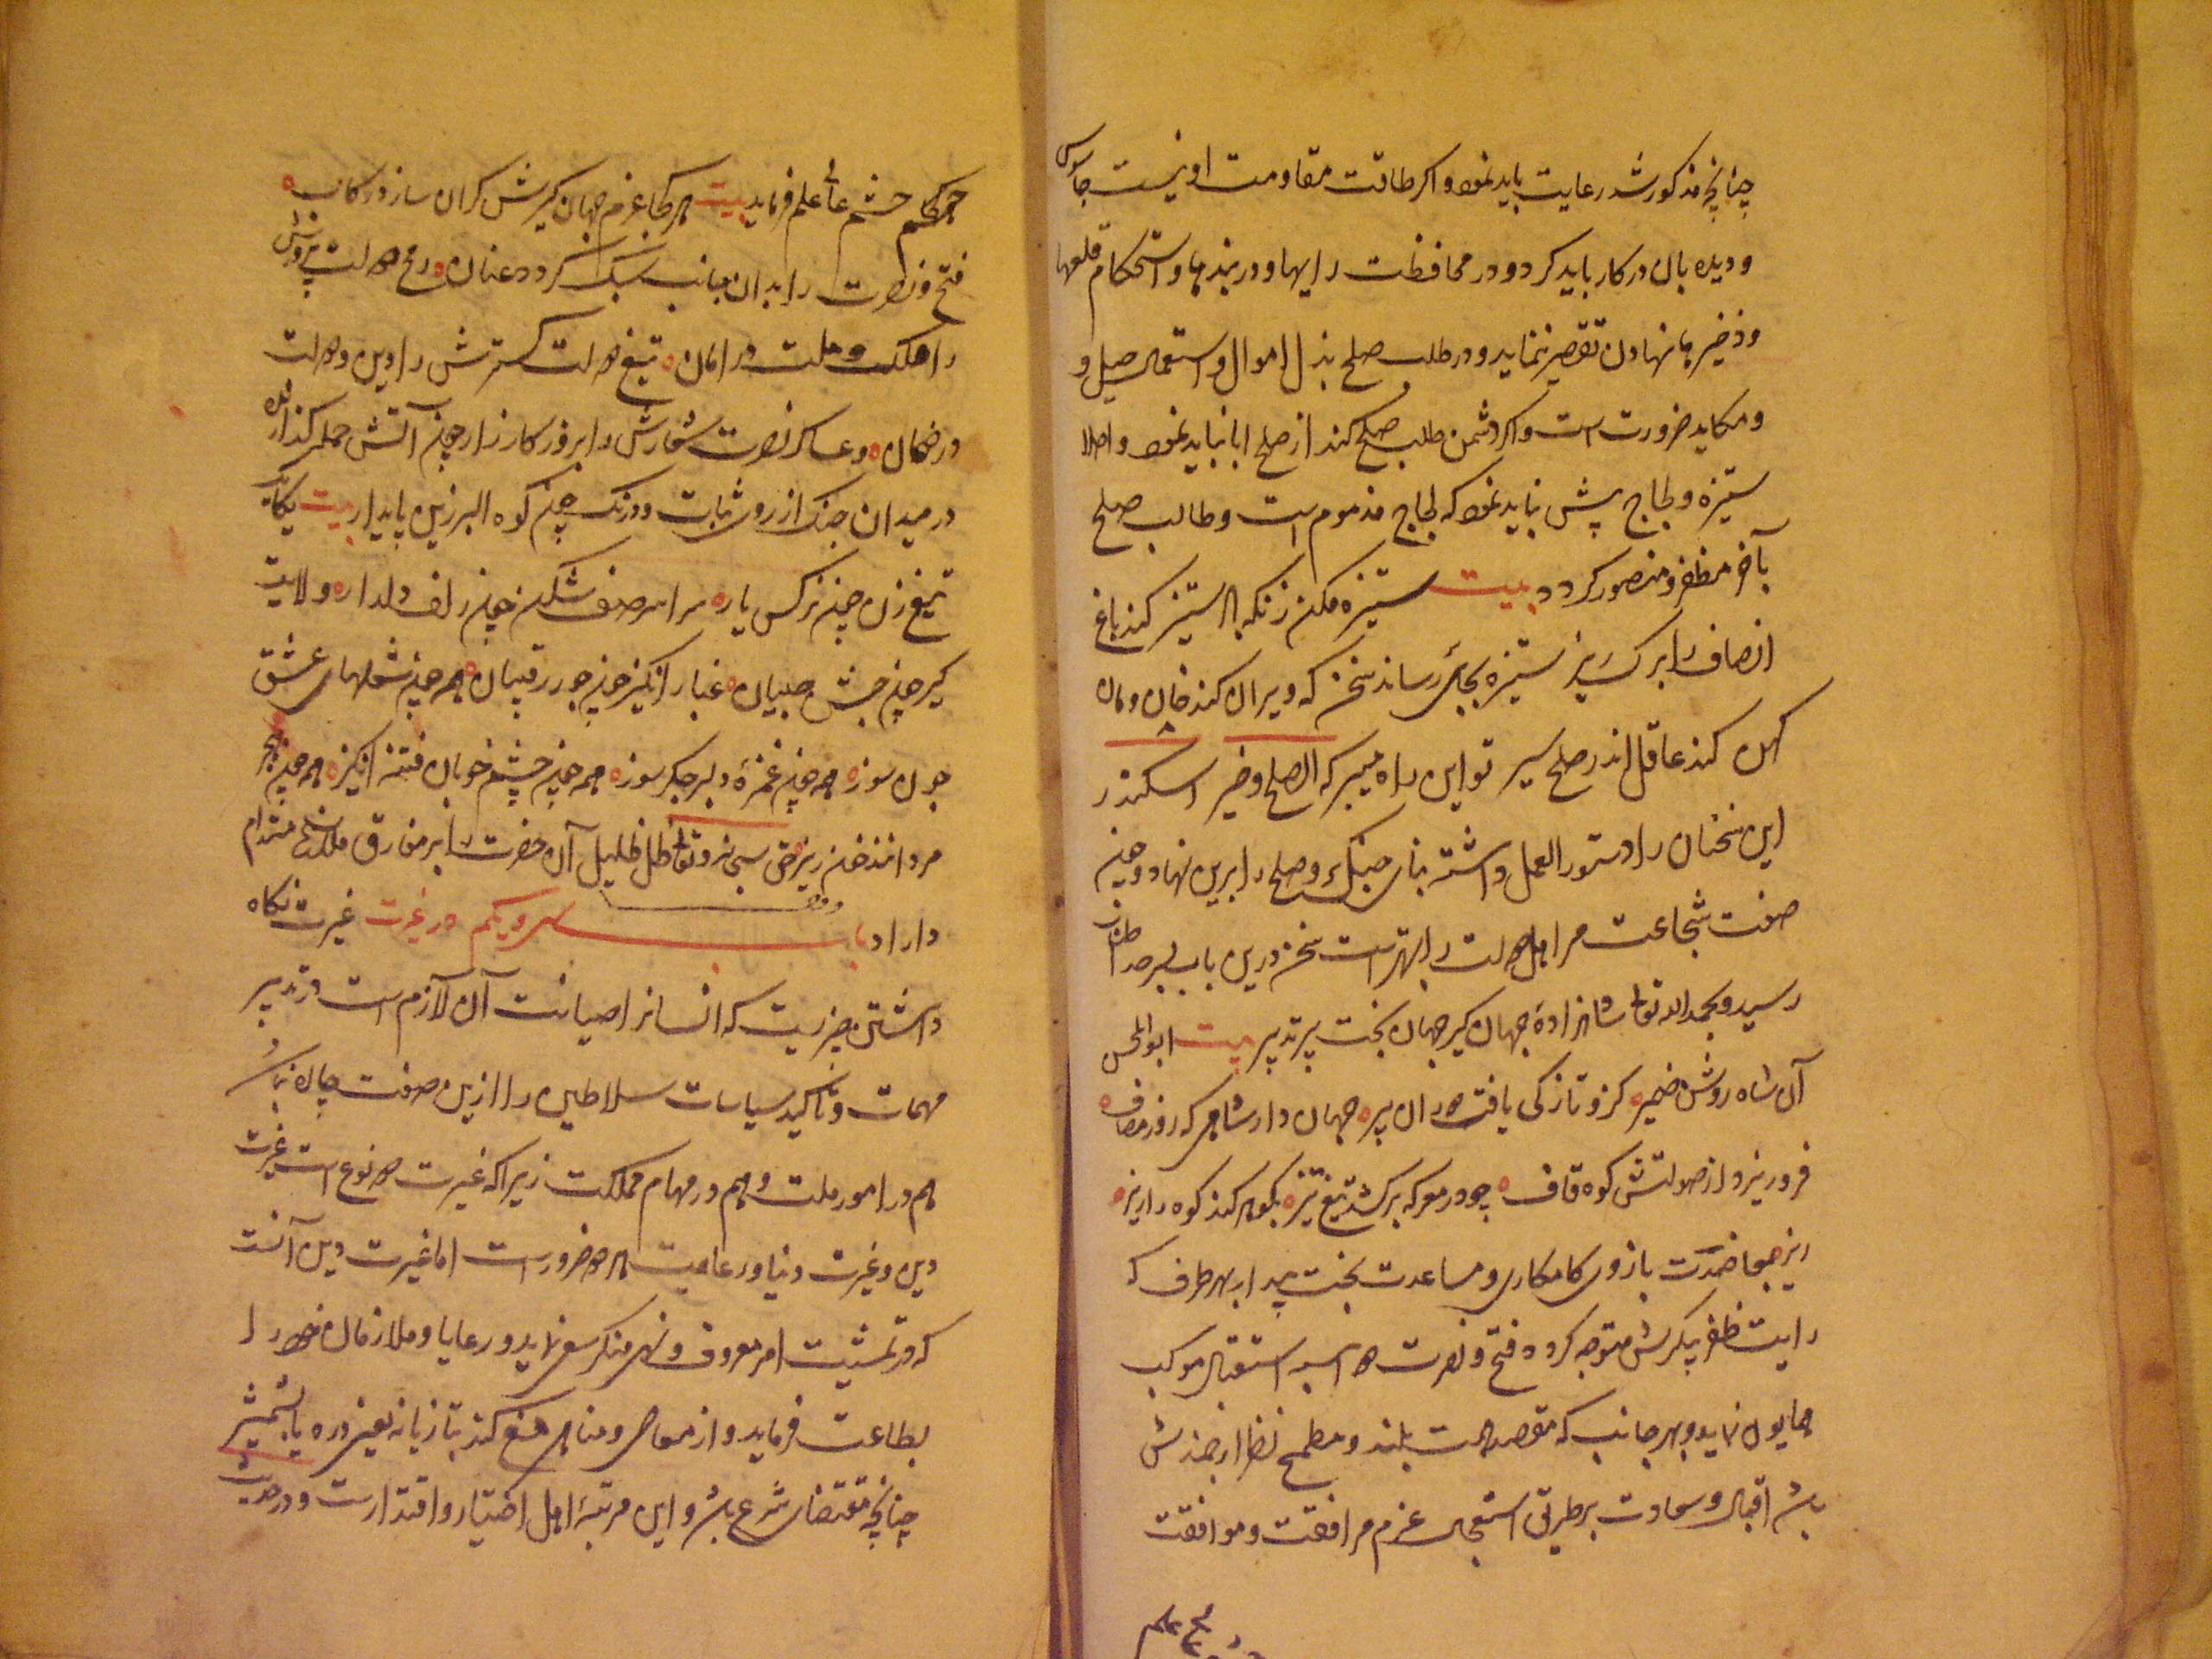 چنانچه مذکور شد رعایت باید نمود و اگر طاقت مقاومت او نیست جاسوس
و دیده بان در کار باید کرد و در محافظت راهها و دربندها و استحکام قلعها
و ذخیرها نهادن تقصیر ننماید و در طلب صلح بذل اموال و استعمال حیل و
و مکاید ضرورت است و اگر دشمن طلب صلح کند از صلح ابا نباید نمود و اصلا
ستیزه و لجاج پیش نباید نمود که لجاج مذموم است و طالب صلح
بآخر مظفر و منصور گردد بیت ستیزه مکن زنکه ستیز کند باغ
انصاف را برگ ریز ستیزه بجای رساند سخن که ویران کند خان و مان
کهن کند عاقل اندر صلح سیر تو این راه میبر که الصلح خیر اسکندر
این سخنان را دستور العمل داشته بنای جنگ و صلح را برین نهاد و چون
صفت شجاعت مر اهل دولت را بهترست سخن درین باب بسرحد اطناب
رسید و بحمد الله تعالی شاهزادهٔ جهان گیر جهان بخت پیر تدبیر بیت ابو المحسن
آن شاه روشن ضمیر کزو تازگی یافت دوران پیر جهان دار شاهی که روز مصاف
فرو ریزد از صولتش کوه قاف چو در معرکه برکشد تیغ تیز بگوهر کند کوه را ریز
ریز بمعاضدت بازوی کامکاری و مساعدت بخت بیدار بهر طرف که
رایت ظفر پیکرش متوجه گردد فتح و نصرت دو اسبه استقبال موکب
همایون نماید و بهر جانب که مقصد همت بلند و مطمح نظر ارجمندش
باشد اقبال و سعادت بر طریق استعجال عزم مرافقت و موافقت
خیم علم
جمکم حشم عالی علم فرماید بیت هر کجا عزم جهان گیرش گران سازد رکاب
فتح و نصرت را بدان جانب سبک گردد عنان رمح دولت پرورش
را ملک و ملت در امان تیغ دولت گسترش را دین و دولت
در ضمان و عساکر نصرت شعارش را بروز کارزار چون آتش حمله گذارنده
در میدان جنگ از روی ثبات و درنگ چون کوه البرزین پایدار بیت یکایک
تیغ زن چون نرگس یار سراسر صف شکن چون زلف دلدار ولایت
گیر چون جیش حبیبان غبار انگیز چون جور رقیبان همه چون شعلهای عشق
جون سوز همه چون غمزهٔ دلبر جگر سوز همه چون چشم خوبان فتنه انگیز همه چون هجر
مردانند خون ریز حق سبحانه و تعالی ظل ظلیل آن حضرت را بر مفارق ملازمان مستدام
داراد باب سی و یکم در غیرت غیرت نگاه
داشتن چیزیست که انسانرا صیانت آن لازم است و تدبیر
مهمات و تاکید سیاسات سلاطین را ازین صفت چاره نباشد
هم در امور ملت و هم در مهام مملکت زیرا که غیرت دو نوع است غیرت
دین و غیرت دنیا و رعایت هر دو ضرورست اما غیرت دین آنست
که در تمشیت امر معروف و نهی منکر سعی نماید و رعایا و ملازمان خود را
بطاعت فرماید و از معاصی و مناهی منع کند بتازیانه تعزیر دره یا بشمشیر
چنانچه مقتضای شرع باشد و این مرتبهٔ اهل اختیار و اقتدارست و در حدیث